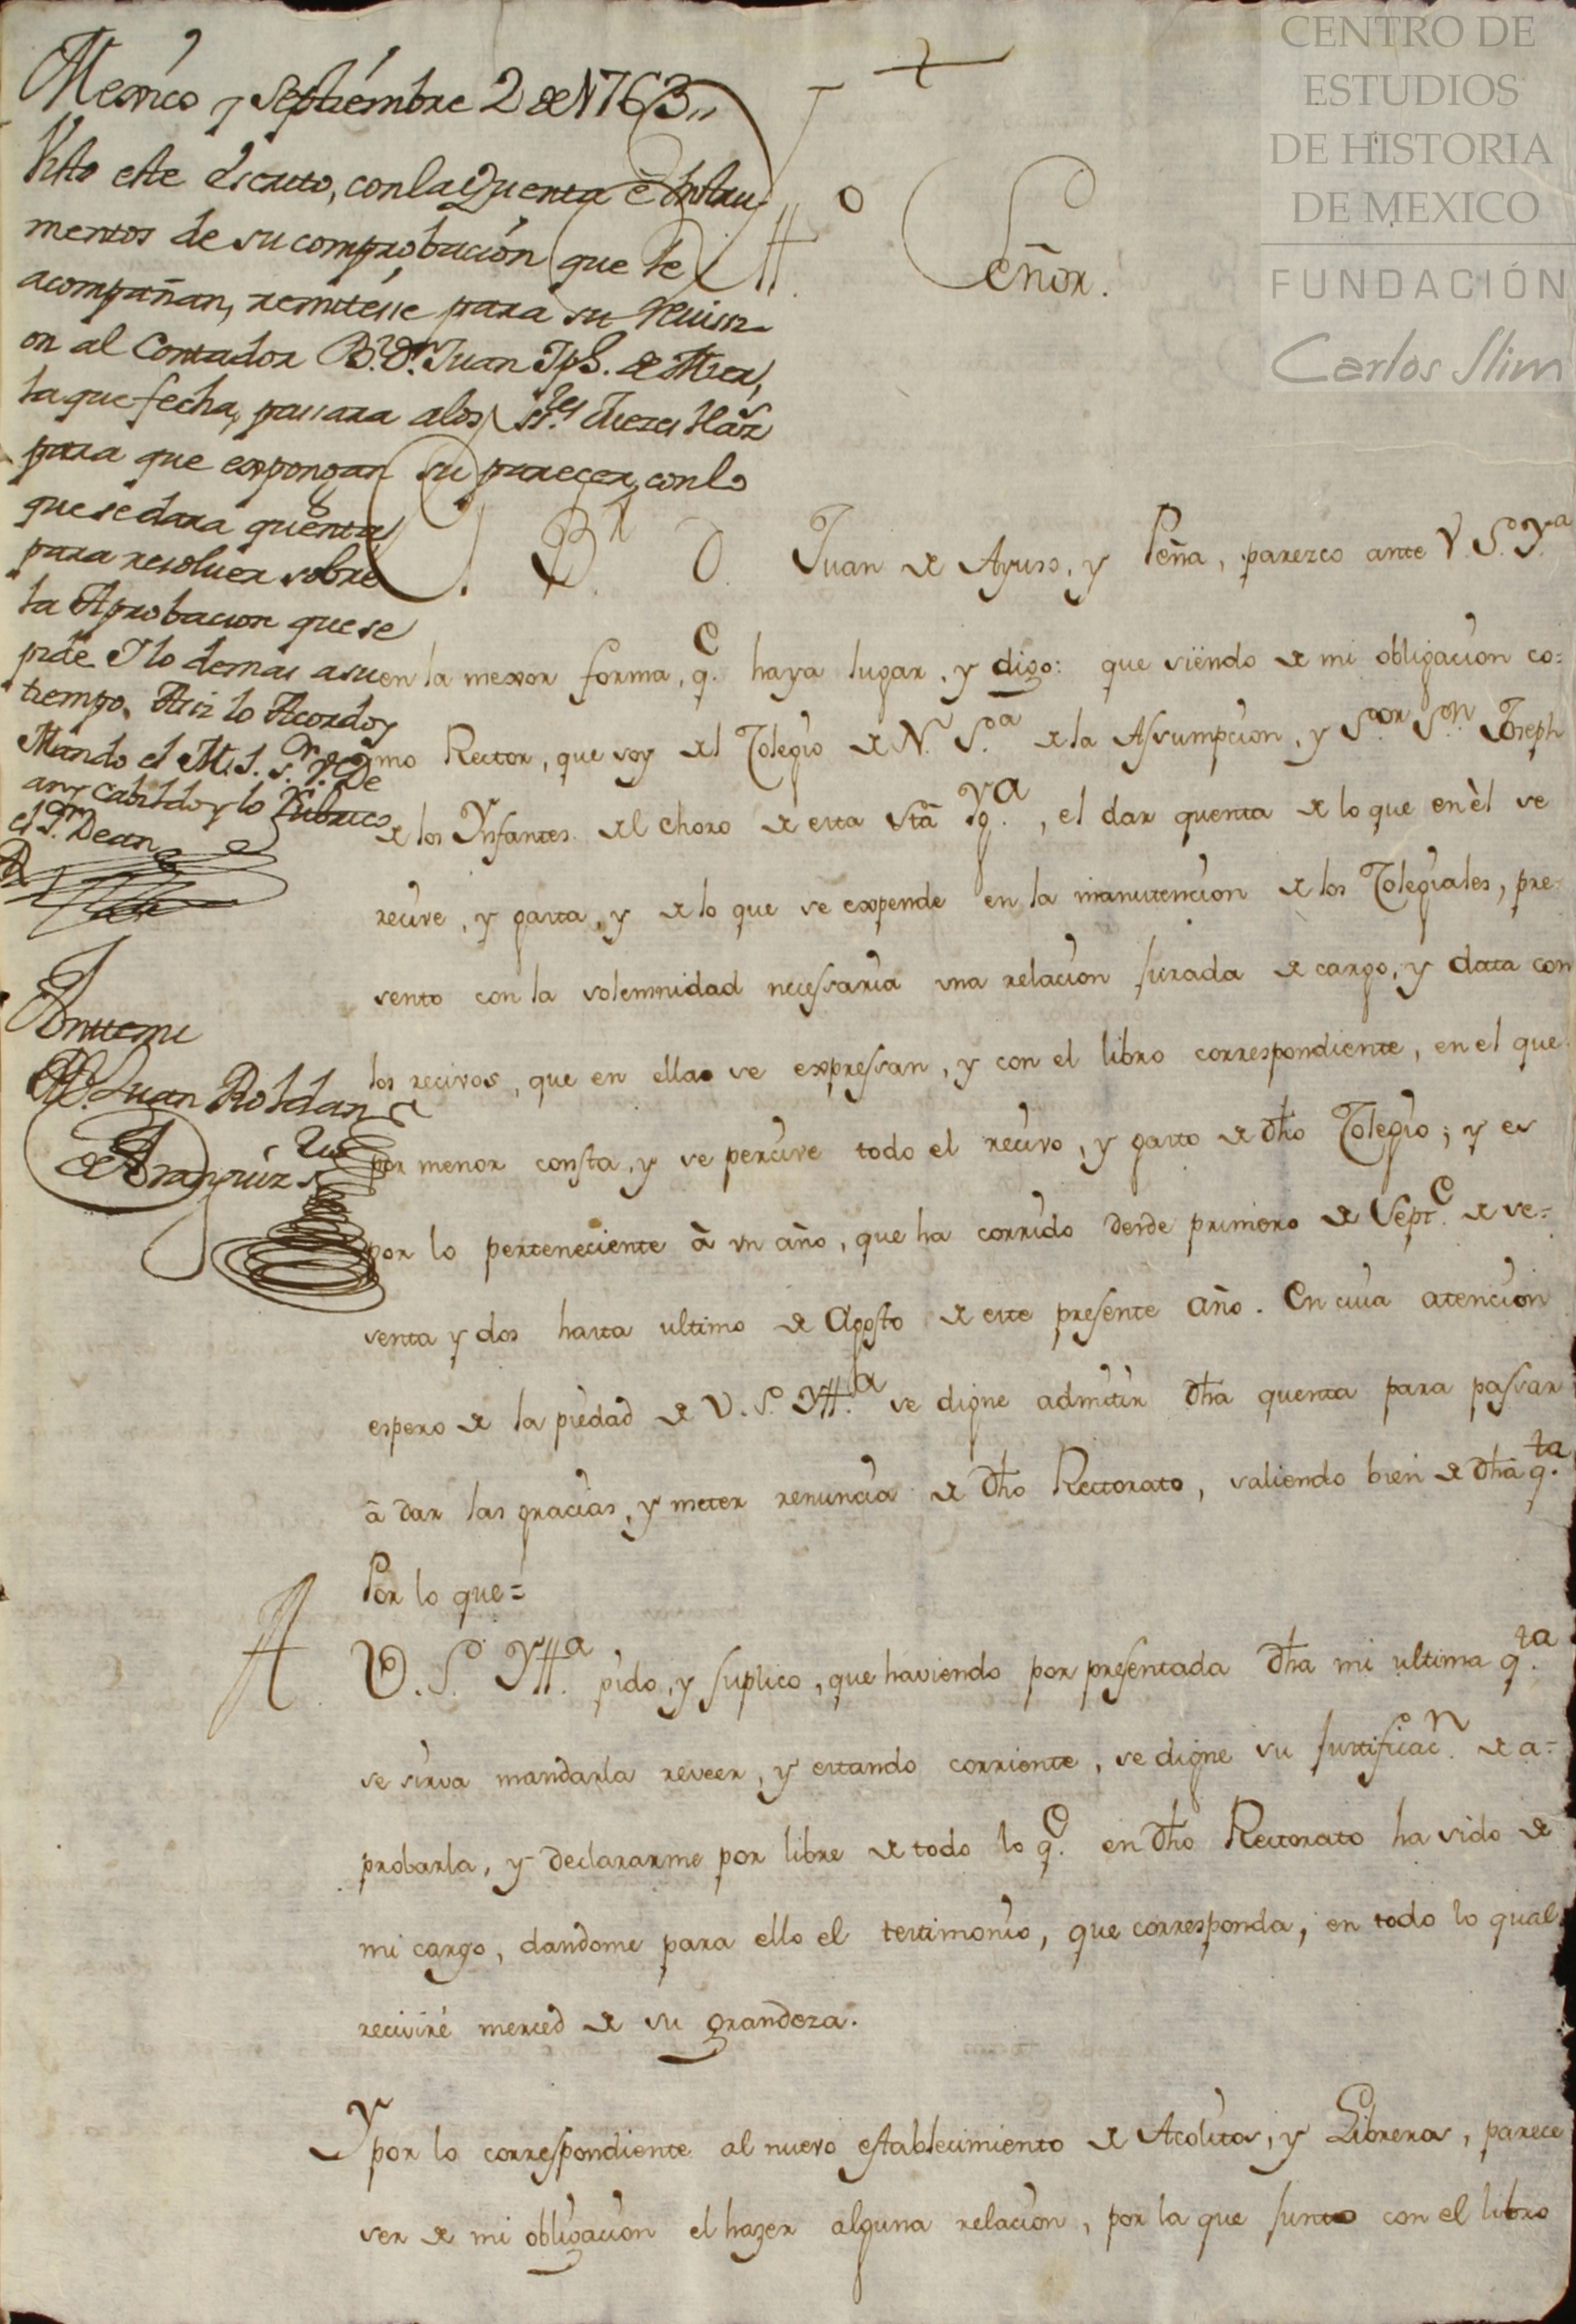 CENTRO DE
ESTUDIOS
DE HISTORIA
DE MEXICO
FUNDACIÓN
Carlos Slim
Mexico y Septiembre 2 de 1763,,
Visto este Escrito, con la Quenta e Instru-
mentos de su comprobacion que se
acompañan, remitesse para su Revissi-
on al Contador B.r D.n Juan Jph. de Mier,
la que fecha, passara a los SS.res Juezes Haz
para que expongan su parecer, con lo
que se dara quenta
para resolver sobre
la Aprobacion que se
pide Y lo demas a su
tiempo. Assi lo Acordo, y
Mando el M. I. S.r V. De
an, y Cabildo y lo Rubrico
el S.r Dean
Antte mi
Juan Roldan
de Aranguiz
Yll.mo Señor.
El B.r D. Juan de Ayuso, y Peña, parezco ante V. S. Y.a
en la mexor forma, q.e haya lugar, y digo: que siendo de mi obligacion co=
mo Rector, que soy del Colegio de N. S.a de la Assumpcion, y S.or S.n Joseph
de los Ynfantes del Choro de esta Sta Yg.a, el dar quenta de lo que en èl se
recive, y gasta, y de lo que se expende en la manutencion de los Colegiales, pre-
sento con la solemnidad necessaria una relacion jurada de cargo, y data con
los recivos, que en ella se expressan, y con el libro correspondiente, en el que
por menor consta, y se percive todo el recivo, y gasto de dho Colegio; y es
por lo perteneciente à un año, que ha corrido desde primero de Sept.e de se=
senta y dos hasta ultimo de Agosto de este presente año. En cuia atencion
espero de la piedad de V. S. Yll.a se digne admitir dha quenta para passar
à dar las gracias, y meter renuncia de dho Rectorato, saliendo bien de dha q.ta
Por lo que=
A V. S. Yll.a pido, y suplico, que haviendo por presentada dha mi ultima q.ta
se sirva mandarla reveer, y estando corriente, se digne su justificac.n de a=
probarla, y declararme por libre de todo lo q.e en dho Rectorato ha sido de
mi cargo, dandome para ello el testimonio, que corresponda, en todo lo qual
reciviré merced de su grandeza.
Y por lo correspondiente al nuevo establecimiento de Acolitos, y Libreros, parece
ser de mi obligacion el hazer alguna relacion, por la que junto con el libro